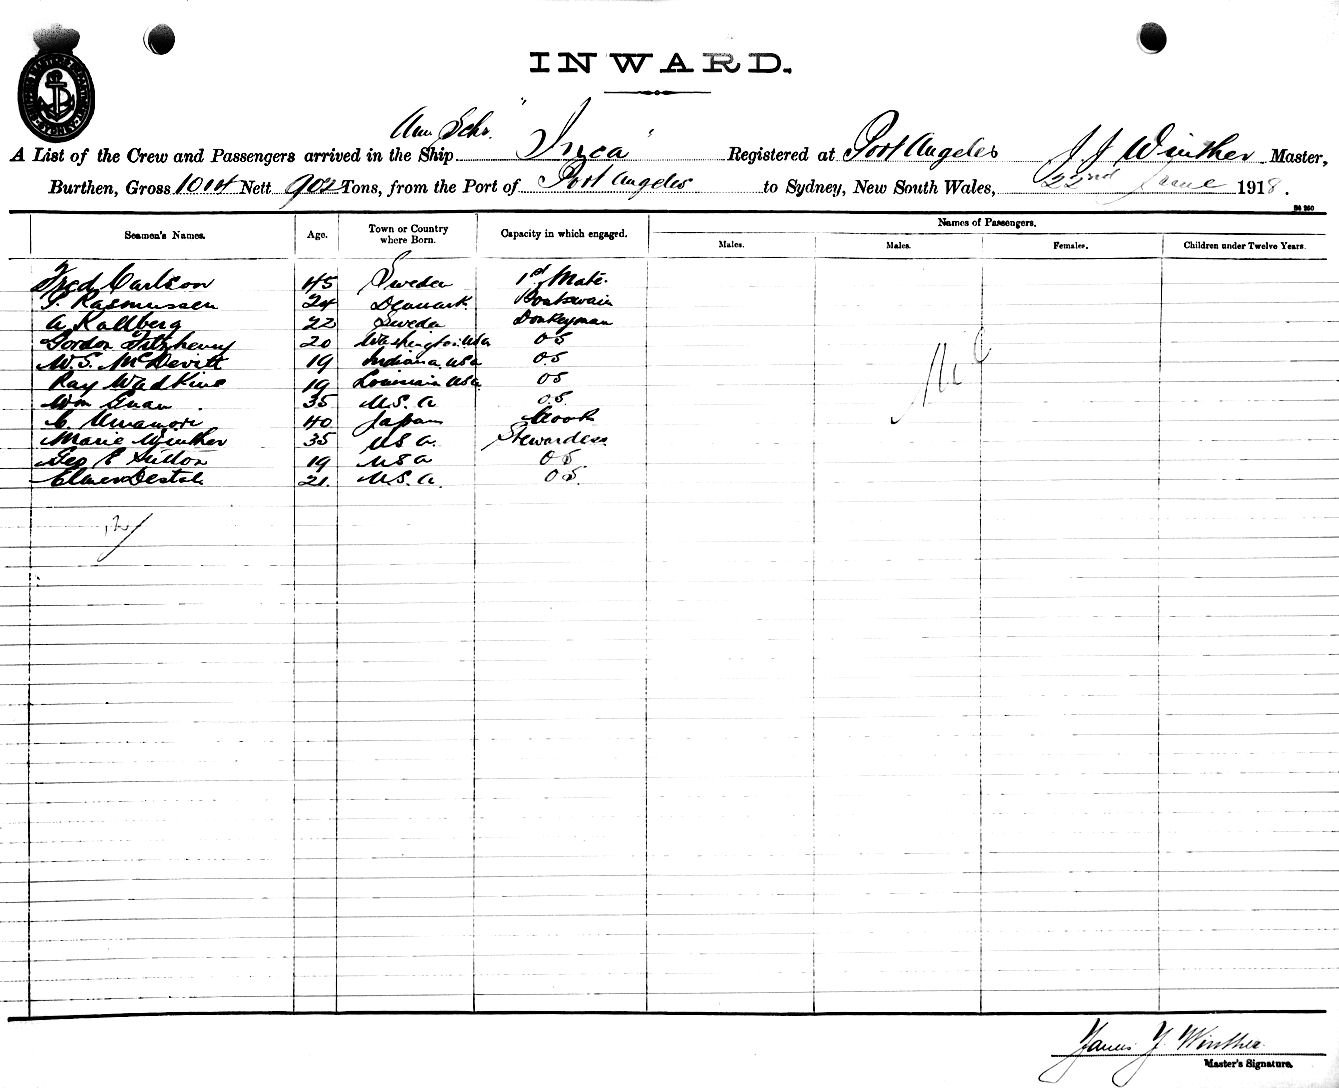 INWARD.
Am Schr. "Inca"
A List of the Crew and Passengers arrived in the Ship Registered at Port Angeles J J Winther Master,
Burthen, Gross 1014 Nett 902 Tons, from the Port of Port Angeles to Sydney, New South Wales, 22nd June 1918.
Seamen's Names. Age. Town or Country where Born. Capacity in which engaged. Names of Passengers.
Males. Males. Females. Children under Twelve Years.
Fred Carlson 45 Sweden 1st Mate.
P. Rasmussen 24 Denmark Boatswain
A Kallberg 22 Sweden Donkeyman
Gordon Fitzhenry 20 Washington USA OS
W.S. McDevitt 19 Indiana USA OS
Ray Wadkins 19 Louisiana USA OS
Wm 35 U.S.A O.S.
40 Japan Cook
Marie Winther 35 USA Stewardess
Geo E Sutton 19 USA OS
Elmer 21. U.S.A. OS.
Nil
12
James J. Winther
Master's Signature.